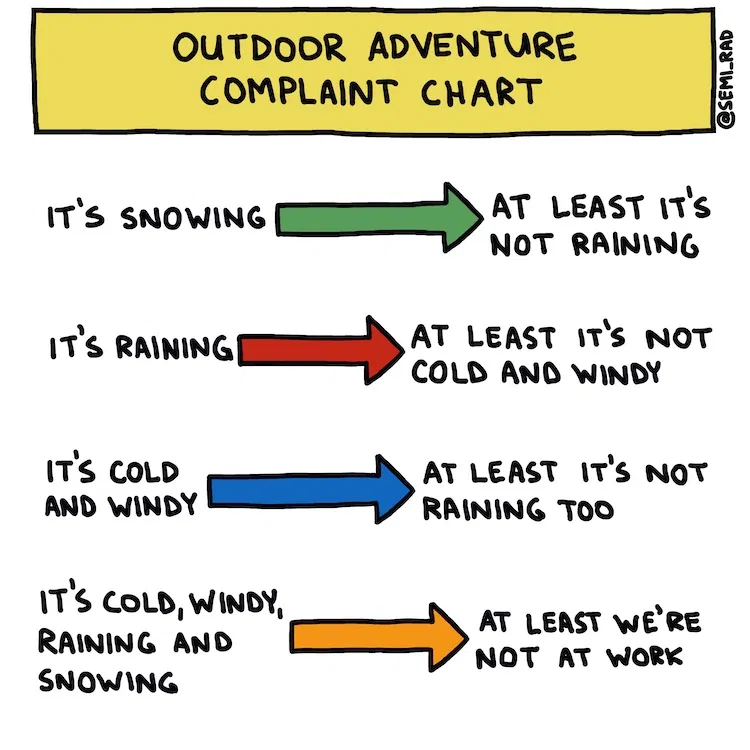 OUTDOOR ADVENTURE
COMPLAINT CHART
@SEMI_RAD
IT'S SNOWING
AT LEAST IT'S
NOT RAINING
IT'S RAINING
AT LEAST IT'S NOT
COLD AND WINDY
IT'S COLD
AND WINDY
AT LEAST IT'S NOT
RAINING TOO
IT'S COLD, WINDY,
RAINING AND
SNOWING
AT LEAST WE'RE
NOT AT WORK